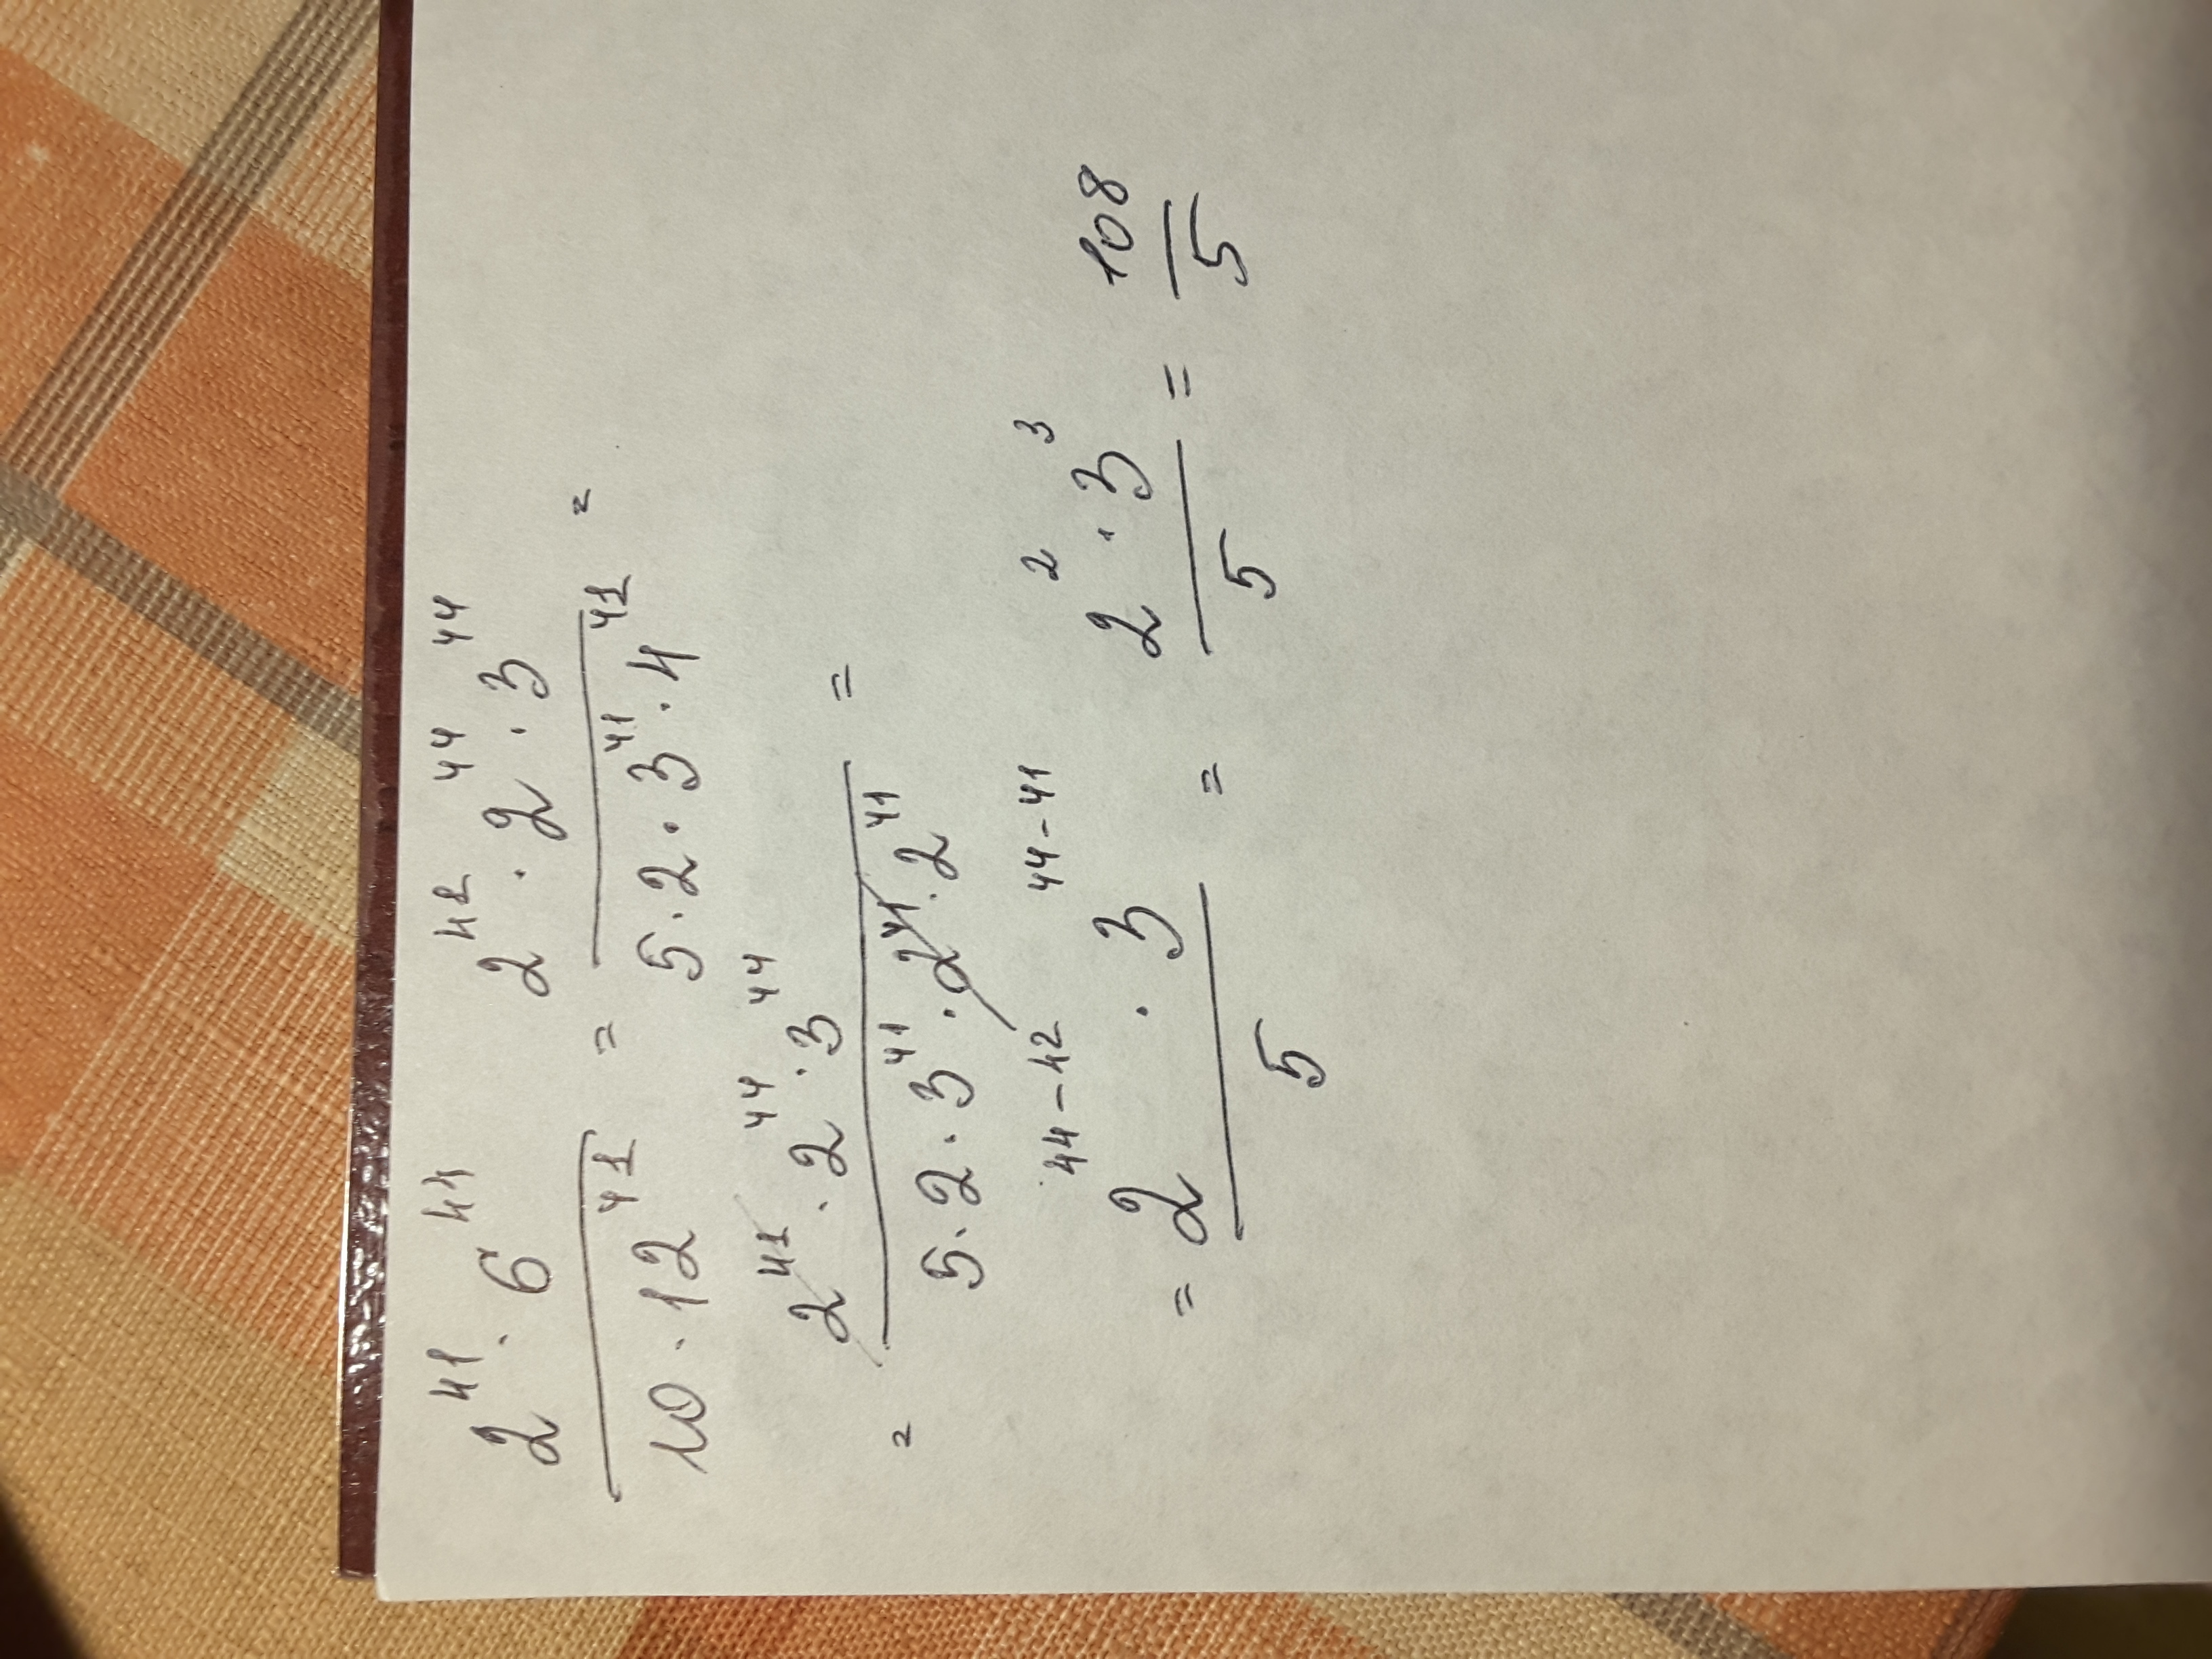 2^41 · 6^44 / 10 · 12^41 = 2^41 · 2^44 · 3^44 / 5 · 2 · 3^41 · 4^41 =
= 2^41 · 2^44 · 3^44 / 5 · 2 · 3^41 · 2^41 · 2^41 =
= 2^44-42 · 3^44-41 / 5 = 2^2 · 3^3 / 5 = 108 / 5